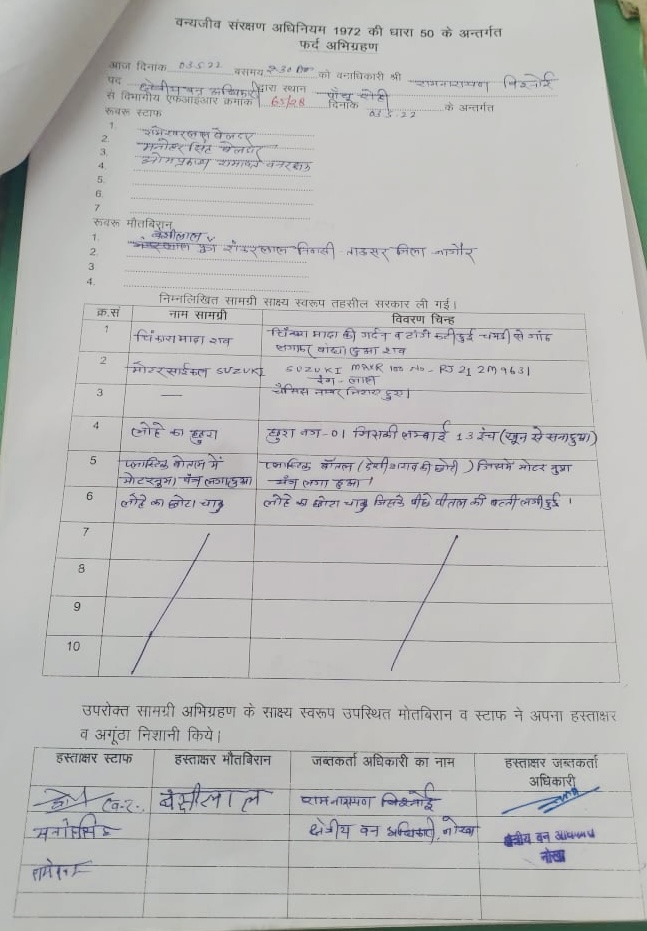 वन्यजीव संरक्षण अधिनियम 1972 की धारा 50 के अन्तर्गत
फर्द अभिग्रहण
आज दिनांक 03.5.22 वसमय 2:30 PM को वनाधिकारी श्री रामनारायण बिश्नोई
पद क्षेत्रीय वन अधिकारी द्वारा स्थान पाँचू रोही
से विभागीय एफआईआर क्रमांक 65/28 दिनांक 03.5.22 के अन्तर्गत
रूवरू स्टाफ
1.
2.
3.
4.
5.
6.
7
रूवरू मौतबिरान
1. बंशीलाल
2. निवासी ताऊसर जिला नागौर
3
4.
निम्नलिखित सामग्री साक्ष्य स्वरूप तहसील सरकार ली गई।
क्र.सं नाम सामग्री विवरण चिन्ह
1 चिंकारा मादा शव चिंकारा मादा की गर्दन व टांगे कटी हुई चमड़ी से गांठ
लगाकर बांधा हुआ शव
2 मोटर साईकल SUZUKI SUZUKI MAX 100 No - RJ 21 2M 9631
रंग - लाल
3 — चैसिस नम्बर हुए।
4 लोहे का छुरा छुरा नग-01 जिसकी लम्बाई 13 इंच (खून से सना हुआ)
5 प्लास्टिक बोतल में प्लास्टिक बोतल (देशी शराब की छोटी) जिसमें मोटर नुमा
यंत्र लगा हुआ यंत्र लगा हुआ।
6 लोहे का छोटा चाकू लोहे का छोटा चाकू जिसके पीछे पीतल की पत्ती लगी हुई।
7
8
9
10
उपरोक्त सामग्री अभिग्रहण के साक्ष्य स्वरूप उपस्थित मोतबिरान व स्टाफ ने अपना हस्ताक्षर
व अगूंठा निशानी किये।
हस्ताक्षर स्टाफ हस्ताक्षर मौतबिरान जब्तकर्ता अधिकारी का नाम हस्ताक्षर जब्तकर्ता
अधिकारी
बंशीलाल रामनारायण बिश्नोई
क्षेत्रीय वन अधिकारी, नोखा क्षेत्रीय वन
नोखा